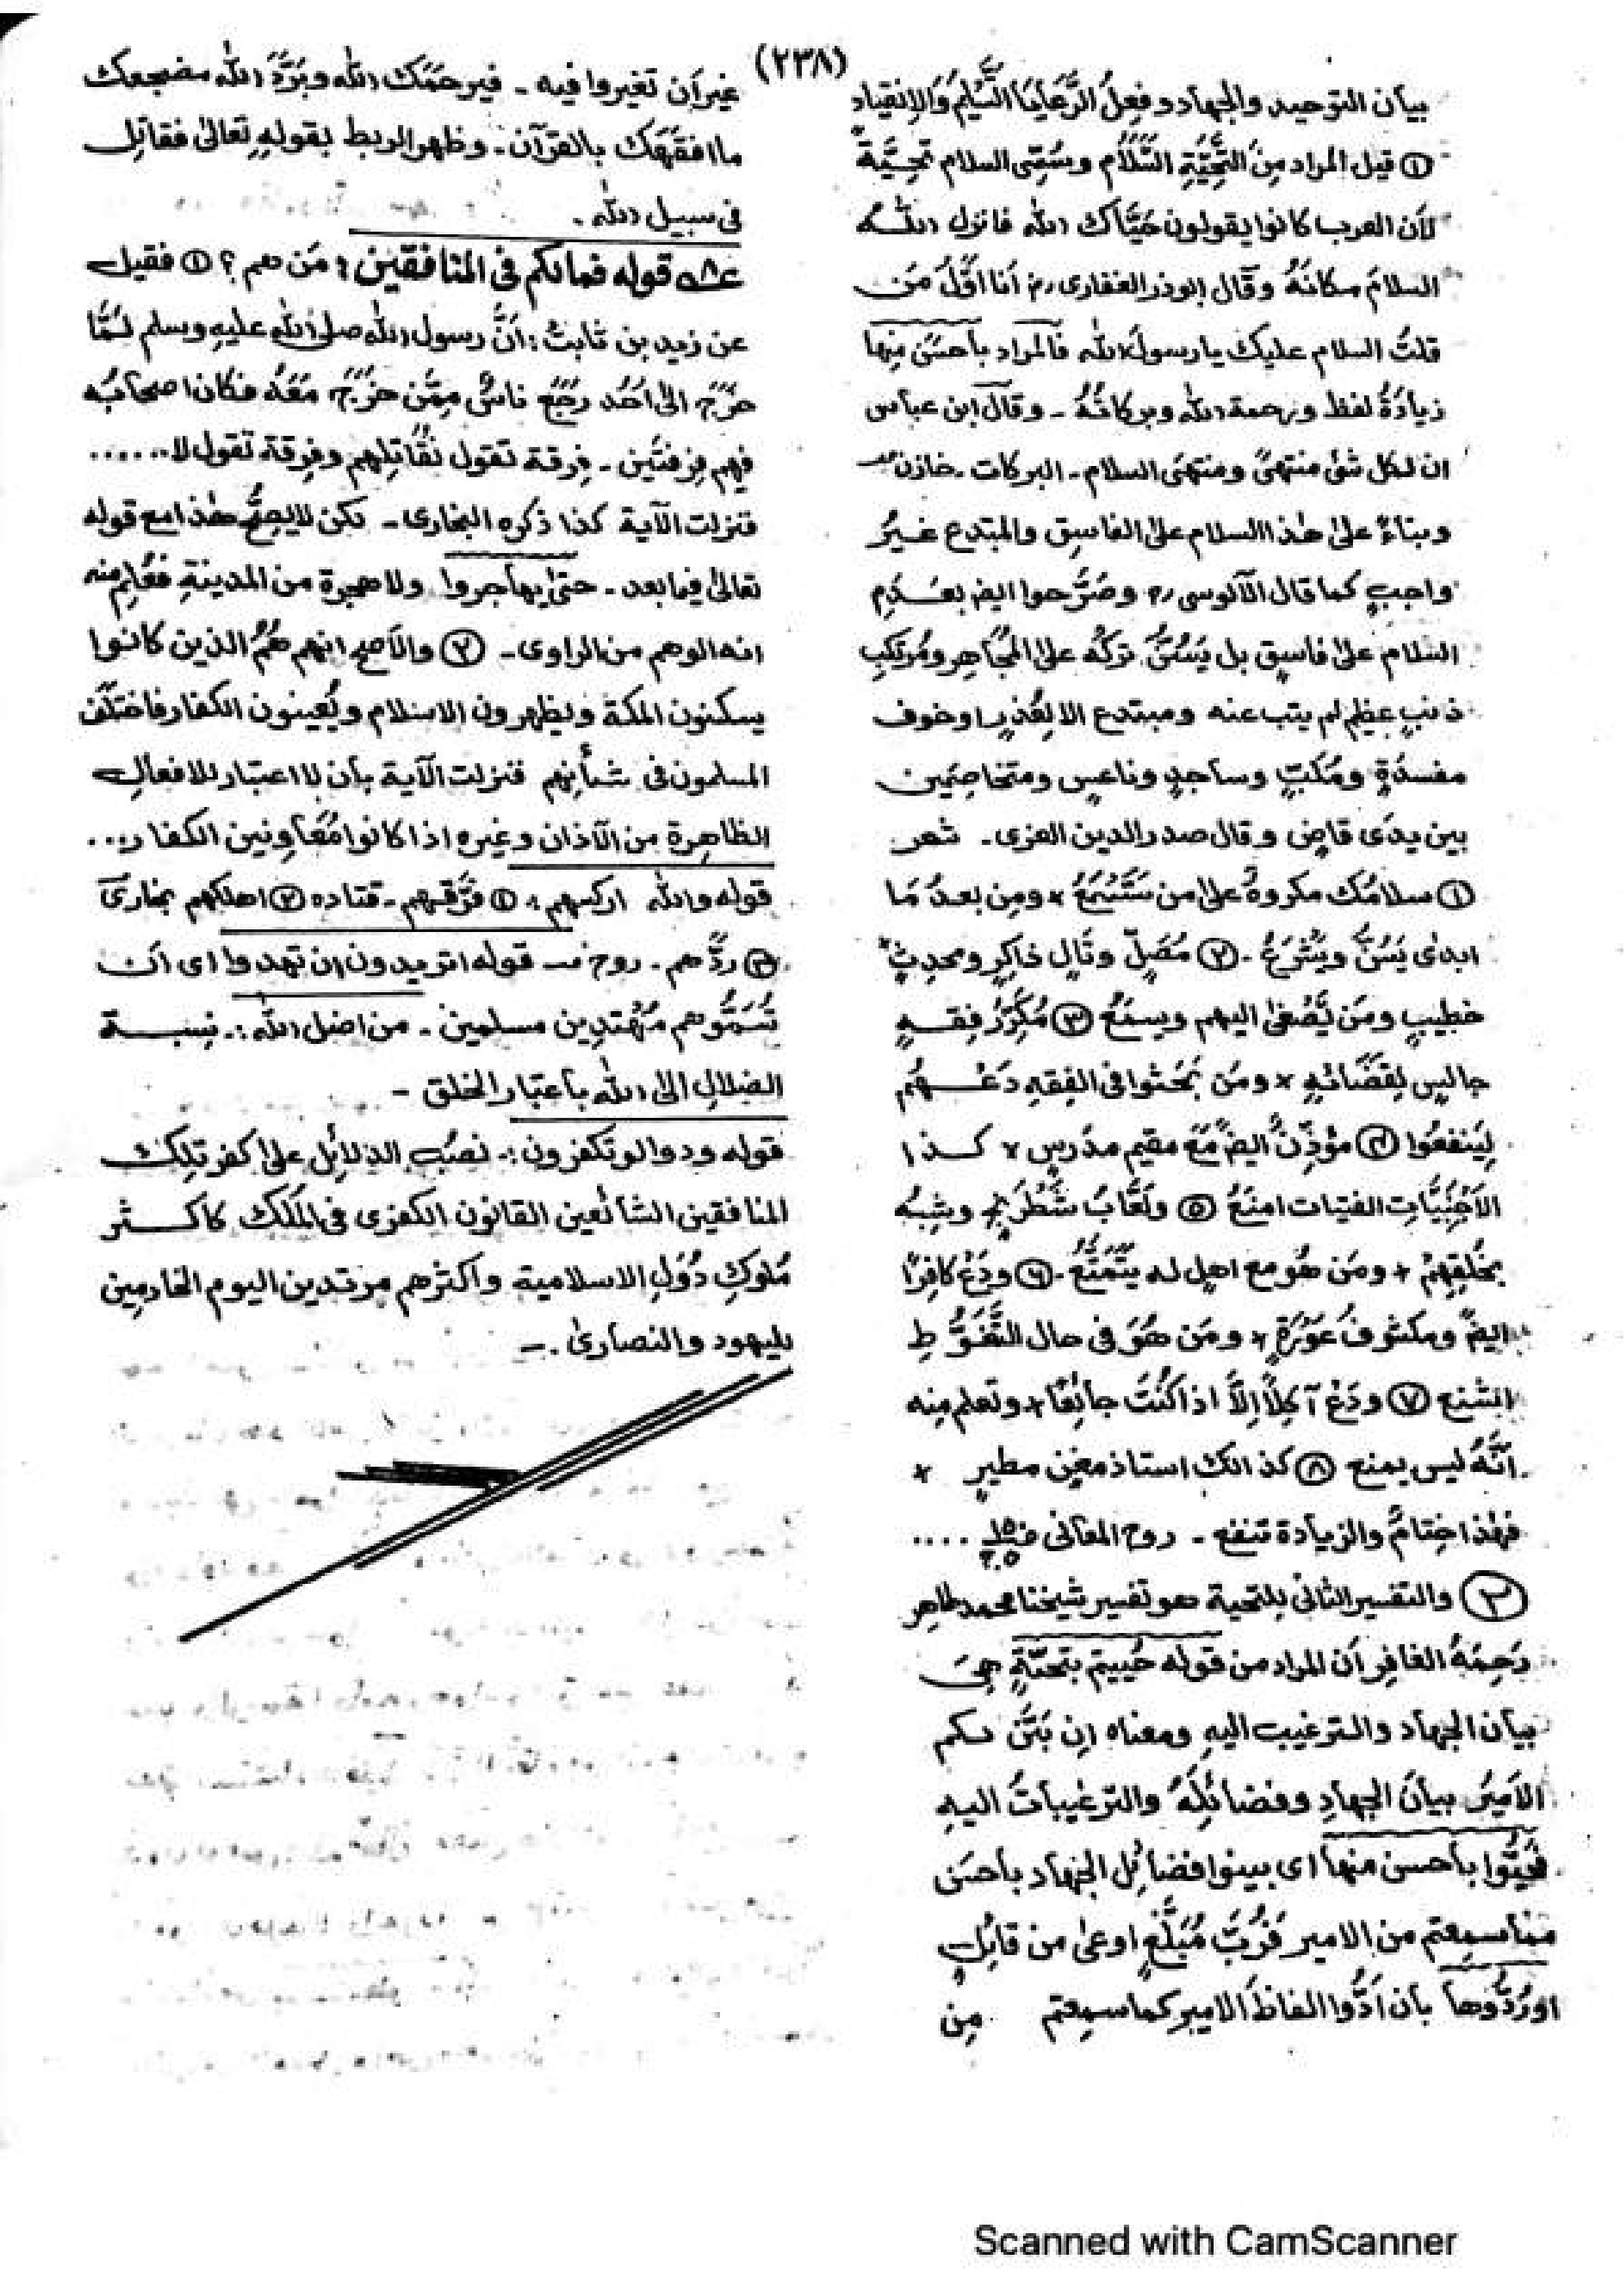 (٢٣٨)
بيان التوحيد والجهاد وفعل الرعايا التسليم والانقياد
① قيل المراد مِنَ التَّحِيَّةِ السَّلَام وسُمّى السلام تحيَّةً
لأن العرب كانوا يقولون حَيَّاكَ الله فانزل الله
السلامَ مكانَهُ وقال ابوذر الغفاری رض أنا اوّلُ مَن
قلتُ السلام عليك يا رسول الله فالمراد بأحسَنَ مِنها
زيادَةُ لفظ ورحمة الله وبركاتُهُ ۔ وقال ابن عباس
ان لكل شئ منتهىً ومنتهى السلام ۔ البركات ۔ خازن
وبناءً على هذا السلام على الفاسِق والمبتدع غيرُ
واجبٍ كما قال الآلوسى رح وصَرَّحوا ايض بعَدَمِ
السلام على فاسِقٍ بل يَسُنُّ تركُه على المجُاهِر ومُرتكِبِ
ذنبٍ عظيمٍ لم يتب عنه ومبتدع الا لِعُذرٍ او خوف
مفسدَةٍ ومُكبٍّ وساجدٍ وناعسٍ ومتخاصِمَين
بين يدَى قاضٍ وقال صدر الدين الغزى ۔ شعر
① سلامُك مكروهٌ على من سَتَسْمَعُ × ومِن بعدُ مَا
ابدى يَسُنُّ ويُشْرَعُ ۔ ② مُصَلٍّ وتَالٍ ذاكِرٍ ومحدِثٍ ×
خطيبٍ ومَن يَّصْغىٰ اليهم ويسمَعُ ③ مُكَرِّرُ فِقهٍ
جالِسٍ لِقَضَائهِ × ومَن بَحَثوا فى الفِقهِ دَعْهُم
لِيَنفعُوا ④ مؤذِّنٌ ايضً مَعَ مقيمٍ مدَرِسٍ × كذا
الأَجْنَبِيَّاتِ الفتيات امنَعُ ⑤ ولَعَّابُ شَطْرَنجٍ وشِبْهُ
بخُلقِهِمْ × ومَن هُوَ مع اهلٍ له يتَمَتَّعُ ۔ ⑥ ودَعْ كافِرًا
ايضً ومكشوفُ عَوْرَةٍ × ومَن هُوَ فى حال التَّغَوُّطِ
اشنع ⑦ ودَعْ آكِلًا اِلَّا اذا كُنتَ جائِعًا × وتعلم مِنه
اَنَّهُ ليس يمنع ⑧ كذالك استاذ مغنٍ مطيرٍ ×
فهٰذا خِتامٌ والزيادة تنفع ۔ روح المعانى ....
② والتفسير الثانى للتحية هو تفسير شيخنا محمد طاهر
رَحِمَهُ الغافِر أن المراد من قوله حُييتم بتحيّةٍ هِىَ
بيان الجهاد والترغيب اليهِ ومعناه اِن بَيَّنَ لكم
الاَمِيرُ بيانَ الجهادِ وفضائلَهُ والترغيباتُ اليهِ
فحَيُّوا بأحسن منها اى بينوا فضائل الجهاد بأحسَن
مما سمعتم من الامير فَرُبَّ مُبَلَّغٍ اوعىٰ من قائلٍ
او رُدُّوها بأن اَدُّوا الفاظ الامير كما سمعتم مِن
غيراَن تغيروا فيه ۔ فيرحمَكَ الله وبَرَّدَ الله مضجعك
ما افقَهَكَ بالقرآن ۔ وظهر الربط بقولهِ تعالىٰ فقاتِل
فى سبيل الله ۔
قوله فمالكم فى المنافقين : مَن هم ؟ ① فقيل
عن زيد بن ثابت : اَنَّ رسول الله صلى الله عليهِ وسلم لَمَّا
خرَجَ الىٰ اُحُد رَجَعَ ناسٌ مِمَّن خرَجَ مَعَهُ فكان اصحابُه
فيهم فِرقتَين ۔ فِرقة تقول نقاتِلهم وفِرقة تقول لا ......
فنزلت الآية كذا ذكره البخارى ۔ لكن لايصِحُّ هٰذا مع قوله
تعالىٰ فيما بعد ۔ حتىٰ يهاجروا ولا هجرة من المدينةِ فعُلِم منه
انه الوهم من الراوى ۔ ② والأصح انهم هُمُ الذين كانوا
يسكنون المكة ويظهرون الاسلام ويُعينون الكفار فاختلف
المسلمون فى شأنِهم فنزلت الآية بأن لا اعتبار للافعالِ
الظاهرة من الآذان وغيره اذا كانوا مُعَاوِنين الكفار ...
قوله والله اركسهم : ① فَرَّقهم ۔ قتاده ② اهلكهم بخارى
③ ردَّهم ۔ روح ۔ قوله اتريدون ان تهدوا اى أن
تُسَمُّوهم مُهْتدِين مسلمين ۔ من اضل الله : ۔ نِسبة
الضلالِ الى الله بأعتبار الخلق ۔
قوله ودوا لو تكفرون : ۔ نصبُ الدلائِل على كفر تلِكَ
المنافقين الشائعين القانون الكفرى فى المُلك كأكثر
مُلوكِ دُوَلِ الاسلامية واكثرهم مرتدين اليوم الخادمين
لليهود والنصارىٰ . ۔
Scanned with CamScanner